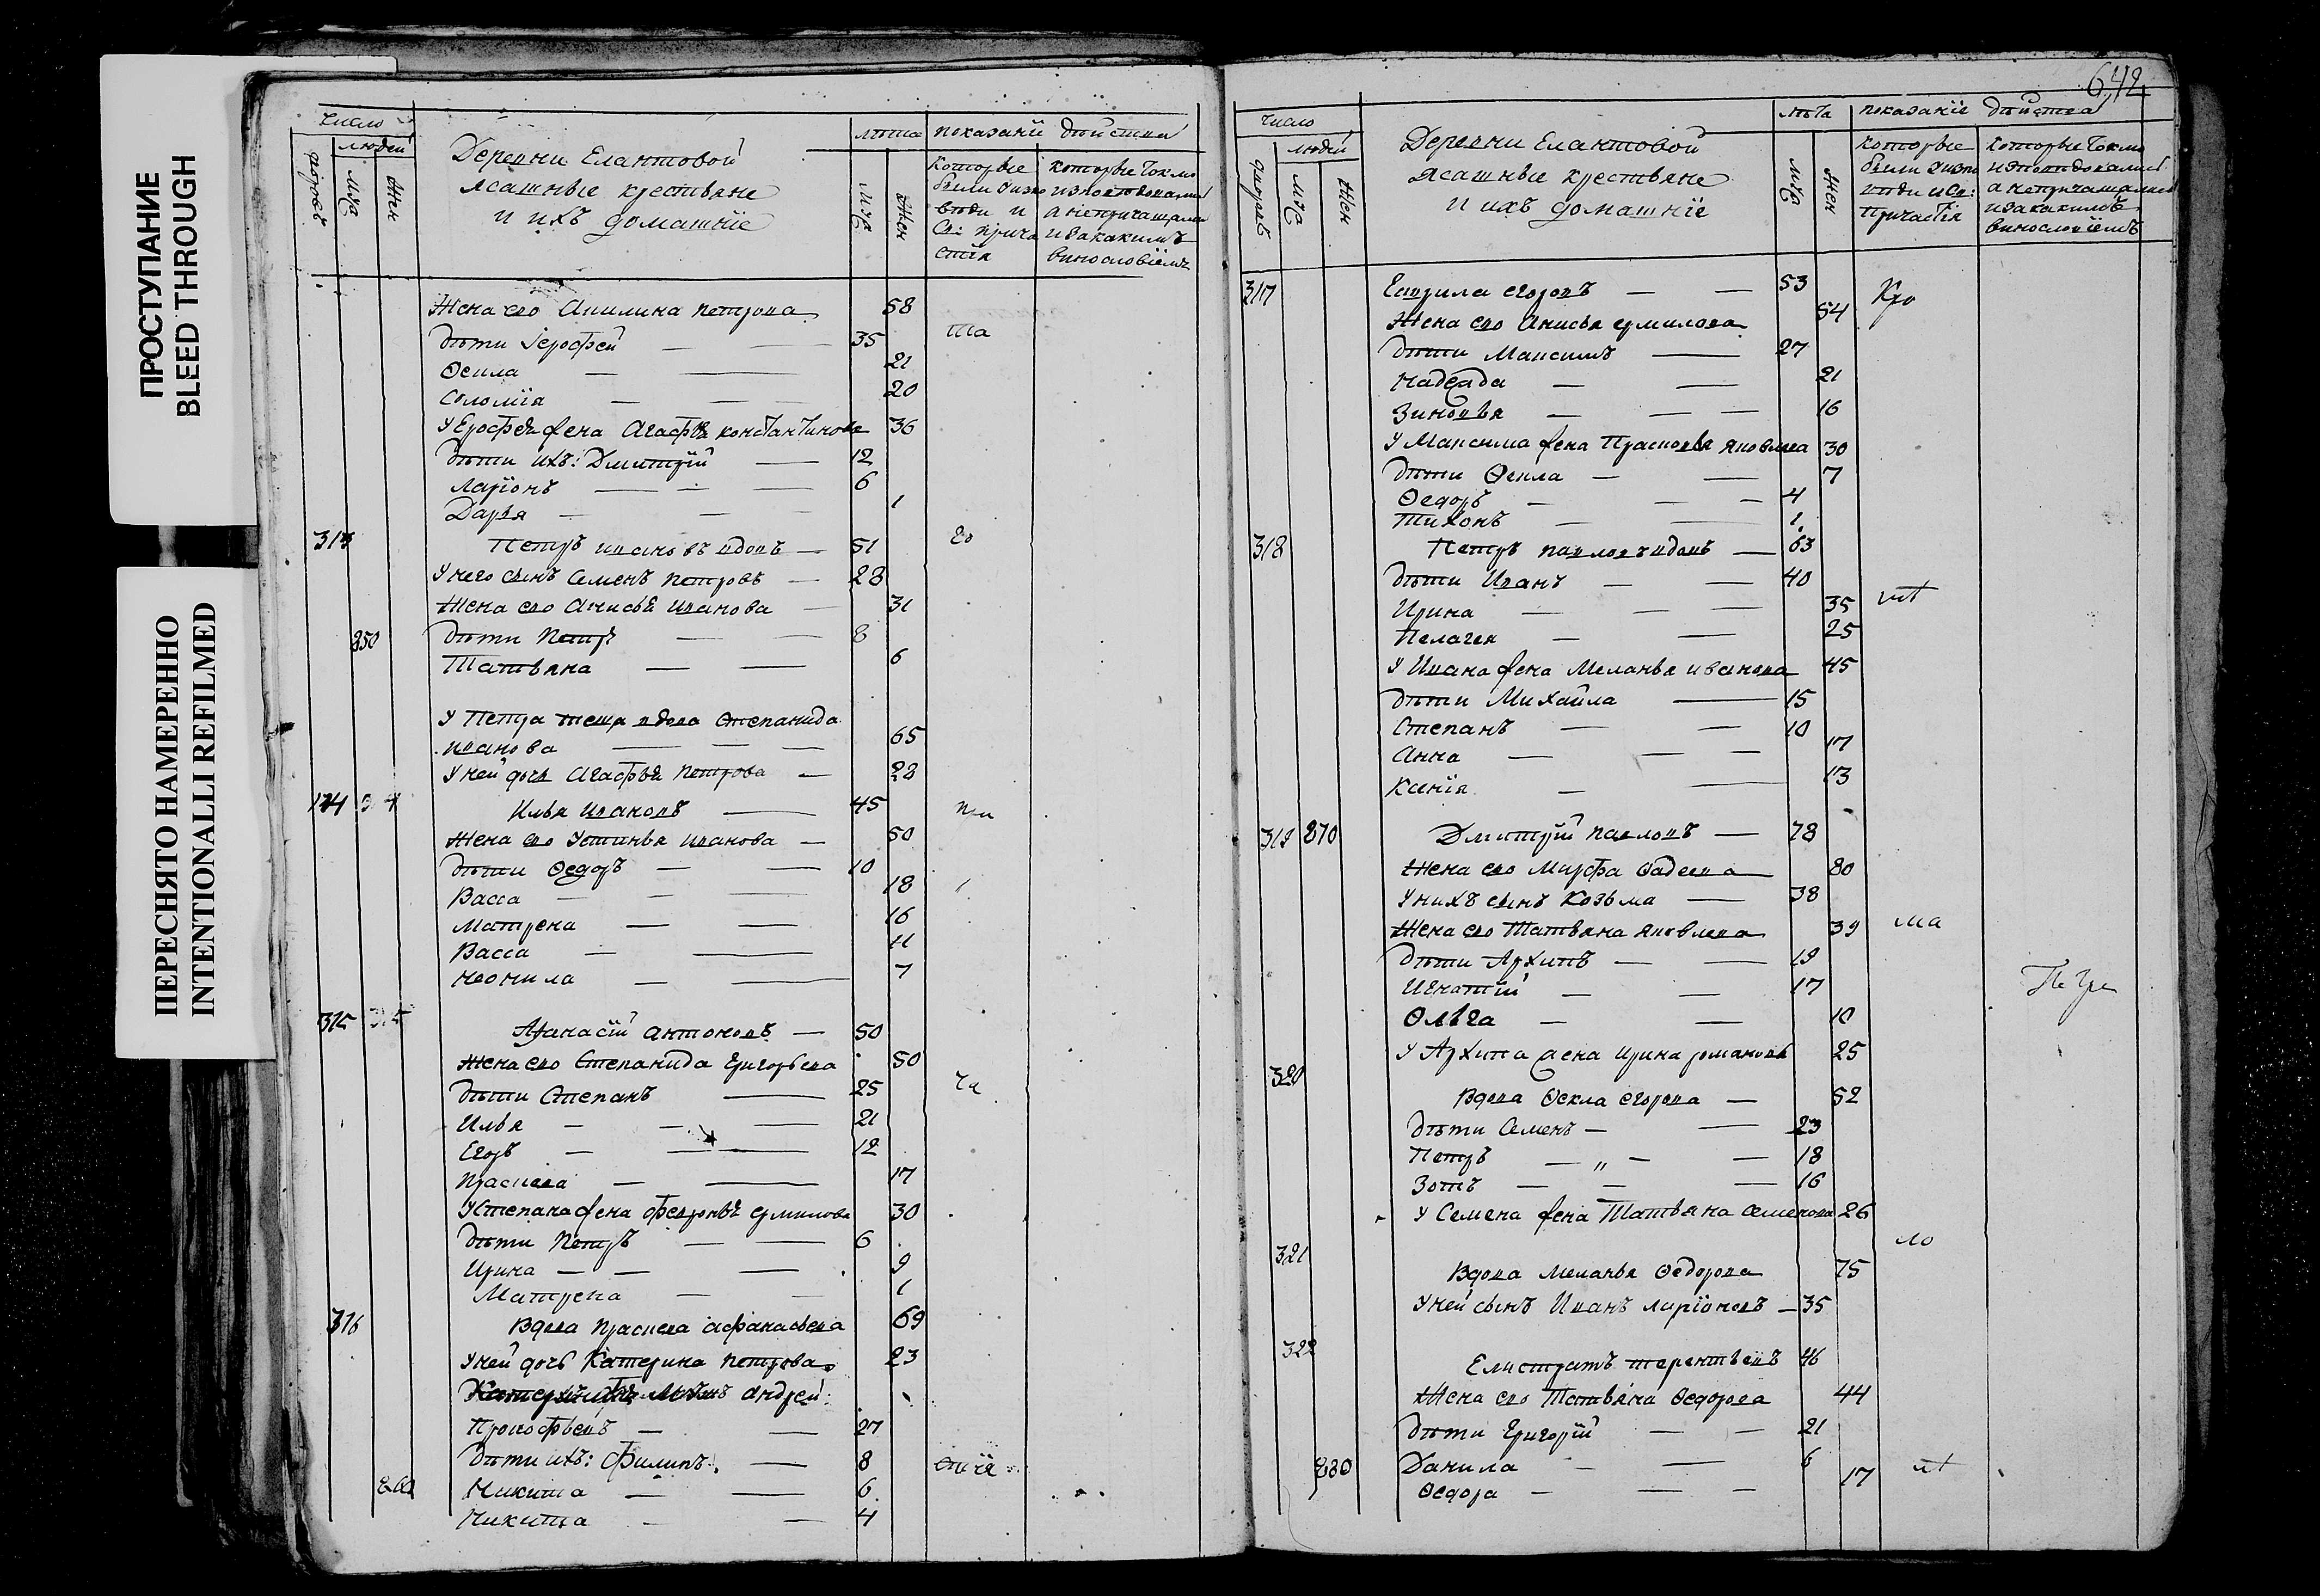 ПРОСТУПАНИЕ
BLEED THROUGH
ПЕРЕСНЯТО НАМЕРЕННО
INTENTIONALLI REFILMED
число
людей
дворовъ
муж
жен
Деревни Елантовой
ясашные крестьяне
и ихъ домашніе
лѣта
муж
жен
показаніи действа
которые были
и
Св: прича
стія
которые токмо
исповѣдались
а непричащались
и за какимъ
винословіемъ
Жена ево Акилина петрова 58
дѣти Іерофей — — 35
Ѳекла — — 21
Соломія — — 20
У Ерофея жена Агафья константинова 36
дѣти ихъ: Дмитрій — 12
Ларіонъ — — — 6
Дарья — — — 1
ша
313 Петръ ивановъ вдовъ — 51
У него сынъ Семенъ петровъ — 28
Жена ево Анисья иванова — 31
250 дѣти петръ — — 8
Татьяна — — 6
ео
У Петра теща вдова Степанида
иванова — — — 65
У ней дочь Агафья петрова — 22
314 Илья ивановъ — 45
Жена ево Устинья иванова — 50
дѣти Ѳедоръ — — 10
Васса — — — 18
Матрена — — 16
Васса — — 11
Неонила — — 7
при
315 Афанасій антоновъ — 50
Жена ево Степанида Григорьева 50
дѣти Степанъ — 25
Илья — — — 21
Егоръ — — 12
Прасковья — — 17
У Степана жена Февронья ермилова 30
дѣти петръ — — 6
Ирина — — — 9
Матрена — — 1
ча
316 Вдова прасковья афанасьева 69
У ней дочь Катерина петрова 23
андрей
Прокофьевъ — — 27
дѣти ихъ: Филипъ — 8
260 Никита — — 6
Никита — — 4
стія
642
число
людей
дворовъ
муж
жен
Деревни Елантовой
ясашные крестьяне
и ихъ домашніе
лѣта
муж
жен
показаніе действа
которые
были
и Св:
причастія
которые токмо
исповѣдались
а непричащались
и за какимъ
винословіемъ
317 егоровъ — — 53
Жена ево Анисья ермилова 54
дѣти Максимъ — 27
Надежда — — 21
Зиновья — — — 16
У Максима жена Прасковья яковлева 30
дѣти Ѳекла — — 7
Ѳедоръ — — — 4
Тихонъ — — 1
Кро
318 Петръ павловъ вдовъ — 63
дѣти Иванъ — — 40
Ирина — — — 35
Пелагея — — 25
У Ивана жена Меланья иванова 45
дѣти Михайла — 15
Степанъ — — 10
Анна — — — 17
Ксенія — — 13
319 270 Дмитрій павловъ — 78
Жена ево Марфа Фадеева 80
У нихъ сынъ Козьма — 38
Жена ево Татьяна яковлева 39
дѣти Архипъ — — 19
Игнатій — — 17
Ольга — — 10
У Архипа жена Ирина романова 25
ма
320 Вдова Ѳекла егорова — 52
дѣти Семенъ — — 23
Петръ — „ — — 18
Зотъ — — — 16
У Семена жена Татьяна семенова 26
ло
321 Вдова Меланья Ѳедорова 75
У ней сынъ Иванъ ларіоновъ — 35
322 Елистратъ терентьевъ 46
Жена ево Татьяна Ѳедорова 44
дѣти Григорій — — 21
280 Данила — — 6
Ѳедора — — — 17